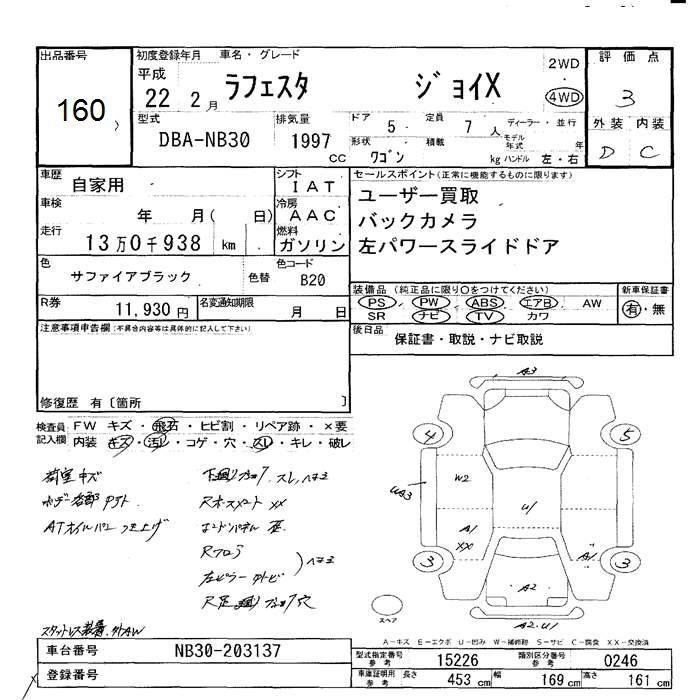 出品番号
160
初度登録年月 車名・グレード
平成 22 2月
ラフェスタ ジョイX
2WD
4WD
評価点
3
外装 内装
D C
型式
DBA-NB30
排気量
1997 cc
ドア 5
定員 7 人
ディーラー・並行
モデル年式 年
形状 ワゴン
積載 kg
ハンドル 左・右
車歴 自家用
シフト IAT
車検 年 月( 日)
冷房 AAC
走行 13万0千938 km
燃料 ガソリン
色 サファイアブラック 色替
色コード B20
R券 11,930円
名変通知期限 月 日
セールスポイント(正常に機能するものに限ります)
ユーザー買取
バックカメラ
左パワースライドドア
装備品 (純正品に限り○をつけてください)
PS PW ABS エアB AW
SR ナビ TV カワ
新車保証書
有・無
後日品 保証書・取説・ナビ取説
注意事項申告欄(不具合内容等は具体的に記入して下さい)
修復歴 有〔箇所 〕
検査員記入欄
FW キズ・飛石・ヒビ割・リペア跡・×要
内装 キズ・汚レ・コゲ・穴・スレ・キレ・破レ
荷室キズ
ATオイルパン
A3
4
5
UA3
W2
U1
A1
XX
A1
3
3
A2
A2.U1
スペア
A-キズ E-エクボ U-凹み W-補修跡 S-サビ C-腐食 XX-交換済
車台番号 NB30-203137
登録番号
型式指定番号 参考 15226
類別区分番号 参考 0246
車庫証明用 参考 長さ 453 cm 幅 169 cm 高さ 161 cm